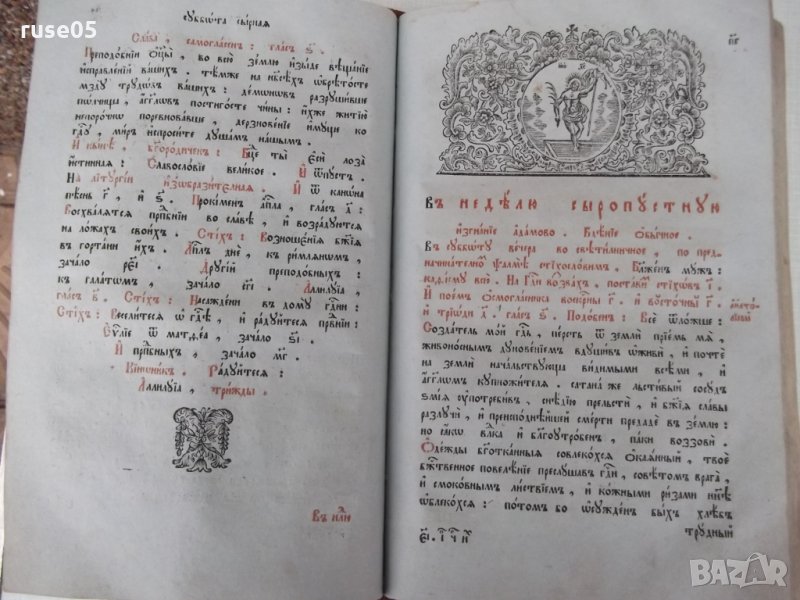 ruse05
суббѡта сырнаѧ
Слава, самогласенъ: гласъ ѕ҃.
Преподобнїи ѻц҃ы, во всю землю изыде вѣщанїе
исправленїй вашихъ. тѣмже на нб҃сѣхъ ѡбрѣтосте
мзду трудѡвъ вашихъ: демѡнѡвъ разрушивше
полчища, а҆гг҃лѡвъ постигосте чины: и҆хже житїю
непорочнѡ поревновавше, дерзновенїе и҆муще ко
гд҃у, миръ и҆спросите душамъ нашымъ.
И҆ нынѣ, бг҃ородиченъ: Бц҃е ты є҆си лоза
и҆стиннаѧ: Славословїе великое. И҆ ѿпустъ.
На літургїи и҆зѡбразителнаѧ. И҆ ѿ канѡна
пѣснь г҃, и҆ ѕ҃. Прокіменъ а҆п҃ла, гласъ
Восхвалѧтсѧ прпⷣбнїи во славѣ, и҆ возрадуютсѧ
на ложахъ своихъ. Стїхъ: Возношенїѧ бж҃їѧ
въ гортани и҆хъ. А҆п҃лъ днѐ, къ римлѧнѡмъ,
зачало рє҃і. Другїй преподобныхъ:
къ галатѡмъ, зачало Аллилуїа,
гласъ в҃. Стїхъ: Насаждени въ дому гдⷭни:
Стїхъ: Веселитесѧ ѡ҆ гдⷭѣ, и҆ радуйтесѧ прв҃нїи:
Єѵⷢ҇лїе ѿ матѳеа, зачало ѕ҃і.
И҆ прпⷣбныхъ, зачало м҃г.
Радуйтесѧ:
Аллилуїа, трижды.
Въ нлⷣю
Въ недѣлю сыропустную
и҆згнанїе а҆дамово. Бдѣнїе ѻ҆бычное.
Въ суббѡту вечера во свѣтилничное, по пред-
начинателнѡмъ ѱалмѣ стїхословимъ: Блаженъ мужъ:
каѳїсму всю. На гдⷭи воззвахъ, поставимъ стїхѡвъ
И҆ поемъ ѻ҆смогласника воскрⷭны г҃, и҆ восточны г҃.
и҆ трїѡди д҃, гласъ ѕ҃. Подобенъ: Все ѿложше:
Создатель мой гдⷭь, персть ѿ земли прїемъ мѧ,
живоноснымъ дуновенїемъ вдушивъ ѡ҆живи, и҆ почте
на земли начальствующа видимыми всѣми, и҆
а҆гг҃лѡмъ купножителѧ. сатана же льстивый сосудъ
ѕмїѧ оу҆потребивъ, снѣдїю прельсти, и҆ бж҃їѧ славы
разлучи, и҆ преисподнѣйшей смерти предаде въ землю:
но ꙗ҆кѡ влⷣка и҆ бл҃гоутробенъ, паки воззови.
Ѻ҆дежды бг҃отканныѧ совлекохсѧ ѻ҆каѧнный, твое
бжⷭтвенное повелѣнїе преслушавъ гдⷭи, совѣтомъ врага,
и҆ смоковнымъ листвїемъ, и҆ кожными ризами нн҃ѣ
ѡ҆блекохсѧ: потомъ бо ѡ҆сужденъ быхъ хлѣбъ
трудный
BAZAR